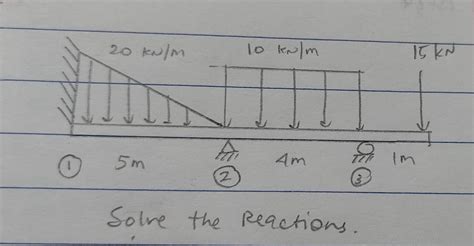 20 KN/m 10 KN/m 15 KN
① 5m ② 4m ③ 1m
Solve the Reactions.